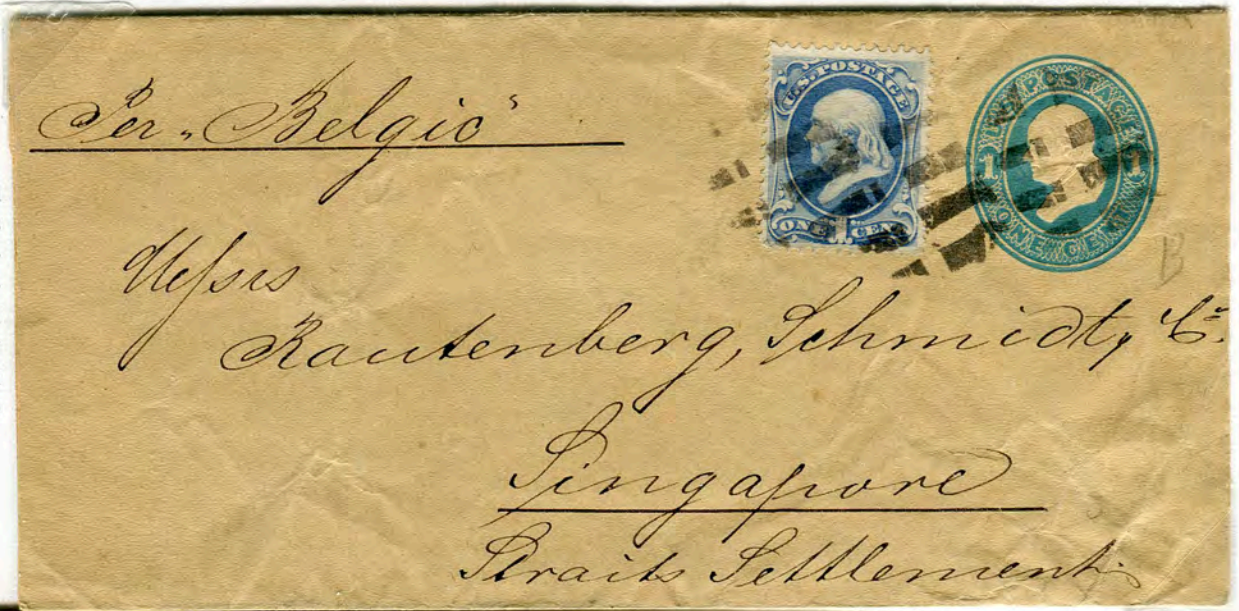 Per „Belgic"
U.S. POSTAGE
ONE CENT
U.S. POSTAGE
1 1
ONE CENT
B
Messrs
Rautenberg, Schmidt, & Co.
Singapore
Straits Settlements